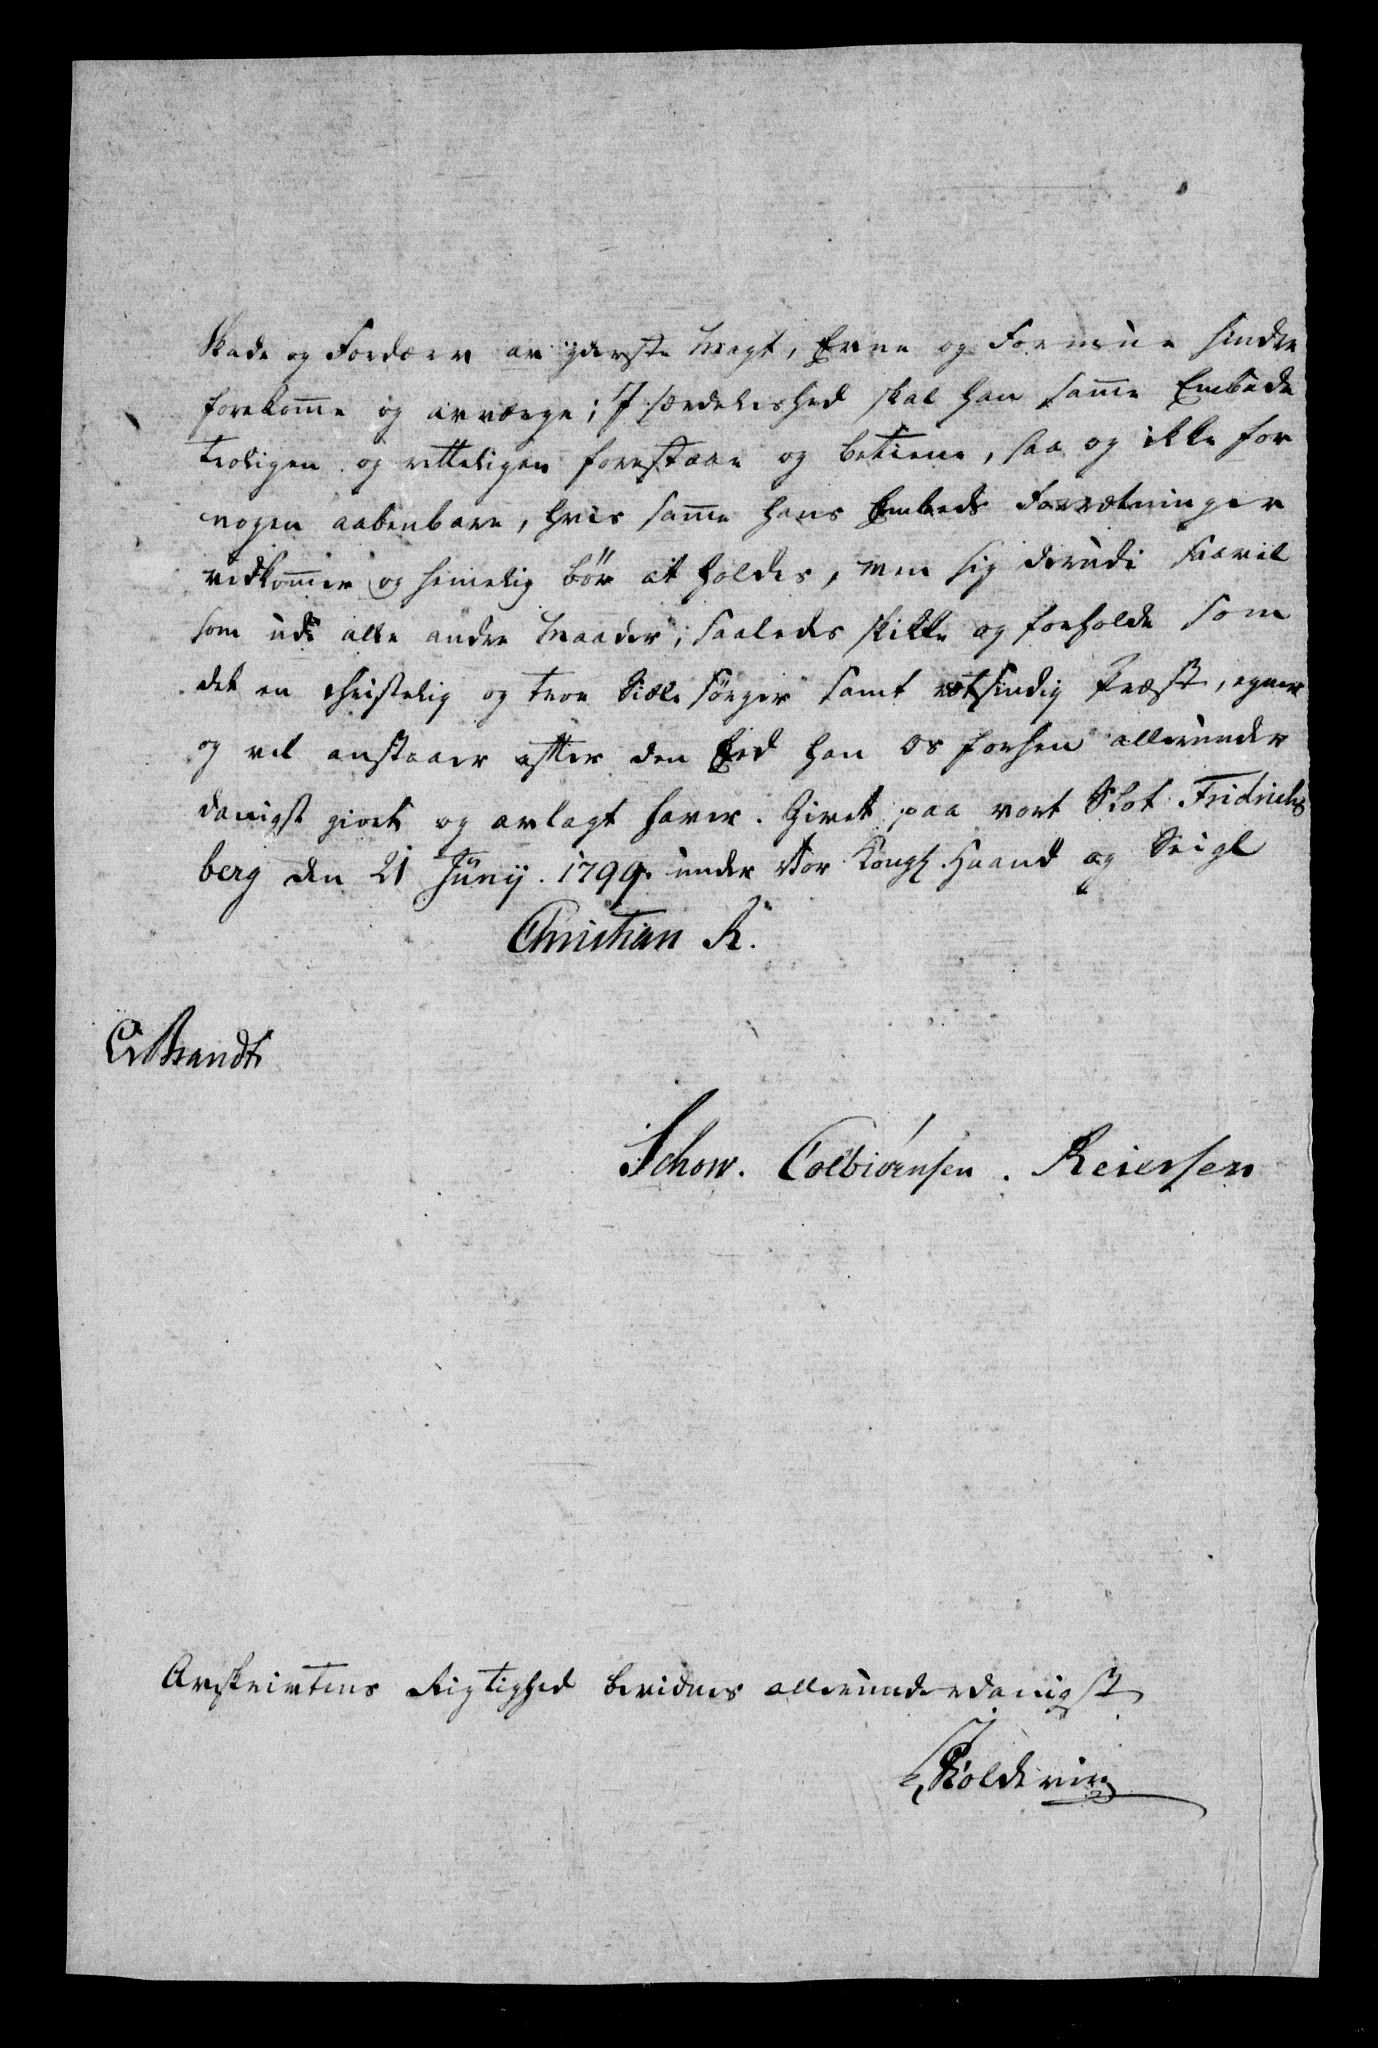 Skade og Fordærv av yderste Magt, Evne og Formue hindre
forekom̅e og avværge; I særdeleshed skal han sam̅e Embede
troligen og retteligen forestaae og betiene, saa og ikke for
nogen aabenbare, hvis sam̅e hans Embeds Forrætninger
vedkom̅er og hemelig bør at holdes, men sig derudi saavel
som udi alle andre Maader, saaledes skikke og forholde som
det en christelig og troe Siæle Sørger samt retsindig Præst, egner
og vel anstaaer efter den Eed han os forhen allerunder
danigst giort og avlagt haver. Givet paa vort Slot Fridrichs
berg den 21 Junij. 1799. under Vor Kongl. Haand og Seigl
Christian R.
Brandt
Schow. Colbiørnsen. Reiersen
Avskrivtens Rigtighed bevidnes allerunderdanigst
Koldevin